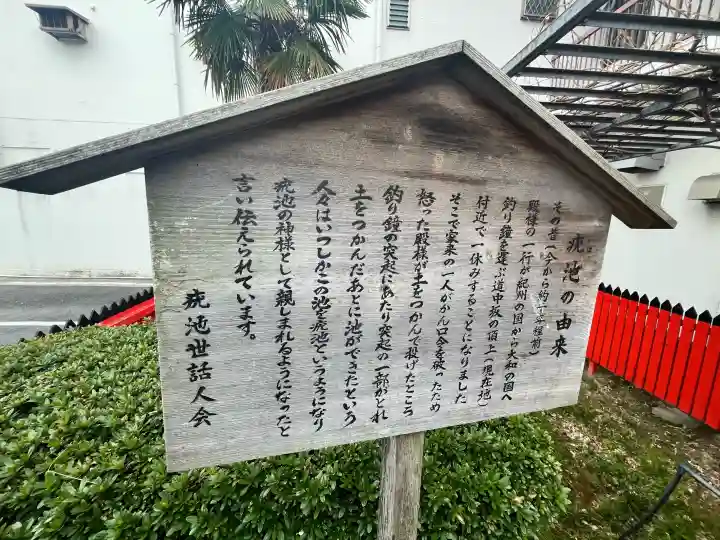 疣池の由来
その昔(今から約千年程前)
殿様の一行が紀州の国から大和の国へ
釣り鐘を運ぶ道中坂の頂上(現在地)
付近で一休みすることになりました
そこで家来の一人がかん口令を破ったため
怒った殿様が土をつかんで投げたところ
釣り鐘の突起にあたり突起の一部がとれ
土をつかんだあとに池ができたという
人々はいつしかこの池を疣池というようになり
疣池の神様として親しまれるようになったと
言い伝えられています。
疣池世話人会